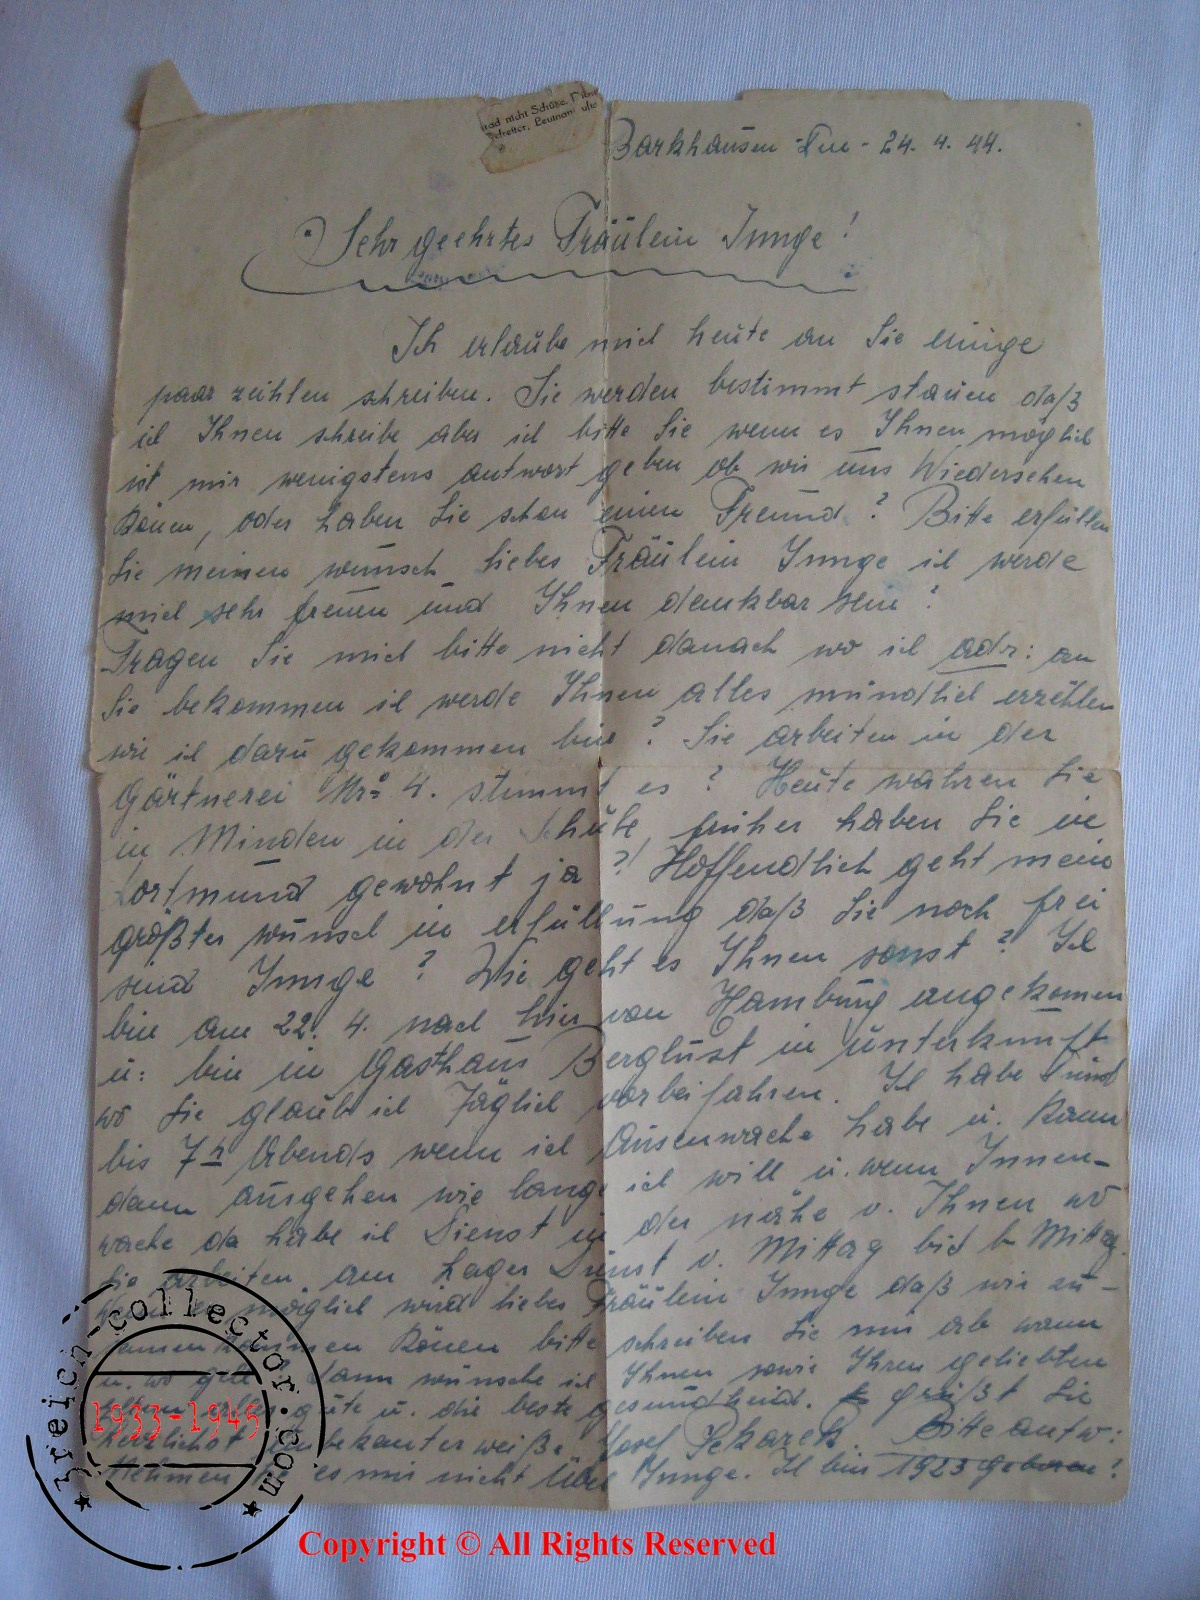 rad nicht Schütze
Gefreiter, Leutnant
Barkhausen - 24. 4. 44.
Sehr geehrtes Fräulein Junge!
Ich erlaube mich heute an Sie einige
paar zeihlen schreiben. Sie werden bestimmt stauen daß
ich Ihnen schreibe aber ich bitte Sie wenn es Ihnen möglich
ist mir wenigstens antwort geben ob wir uns Wiedersehen
Könen, oder haben Sie schon einen Freund? Bitte erfüllen
Sie meinen wunsch liebes Fräulein Junge ich werde
mich sehr freuen und Ihnen dankbar sein!
Fragen Sie mich bitte nicht danach wo ich adr: an
Sie bekommen ich werde Ihnen alles mündlich erzählen
wie ich dazu gekommen bin? Sie arbeiten in der
Gärtnerei Nr: 4. stimmt es? Heute wahren Sie
in Minden in der früher haben Sie in
Dortmund gewohnt ja?! Hoffendlich geht mein
größter wunsch in erfüllung daß Sie noch frei
sind Junge? Wie geht es Ihnen sonst? Ich
bin am 22. 4. nach hier von Hamburg angekomen
u: bin in Gasthaus Berglust in unterkunft
wo Sie glaub ich Täglich vorbeifahren. Ich habe Dienst
bis 7h Abends wenn ich Ausenwache habe u. Kann
dann ausgehen wie lange ich will u. wenn Innen-
wache da habe ich Dienst in der nähe v. Ihnen wo
Sie arbeiten am Lager Dienst v. Mittag bis Mittag.
möglich wird liebes Fräulein Junge daß wir zu-
samen kommen Könen bitte schreiben Sie mir ab wann
u. wo geht. Dann wünsche ich Ihnen sowie Ihren geliebten
alles gute u. die beste gesundheid. grüßt Sie
herzlichst unbekanterweiße. Josef Sekarek. Bitte antw:
Nehmen Sie es mir nicht Übel Junge. Ich bin 1923 geboren!
reich-collector.com
1933-1945
Copyright © All Rights Reserved